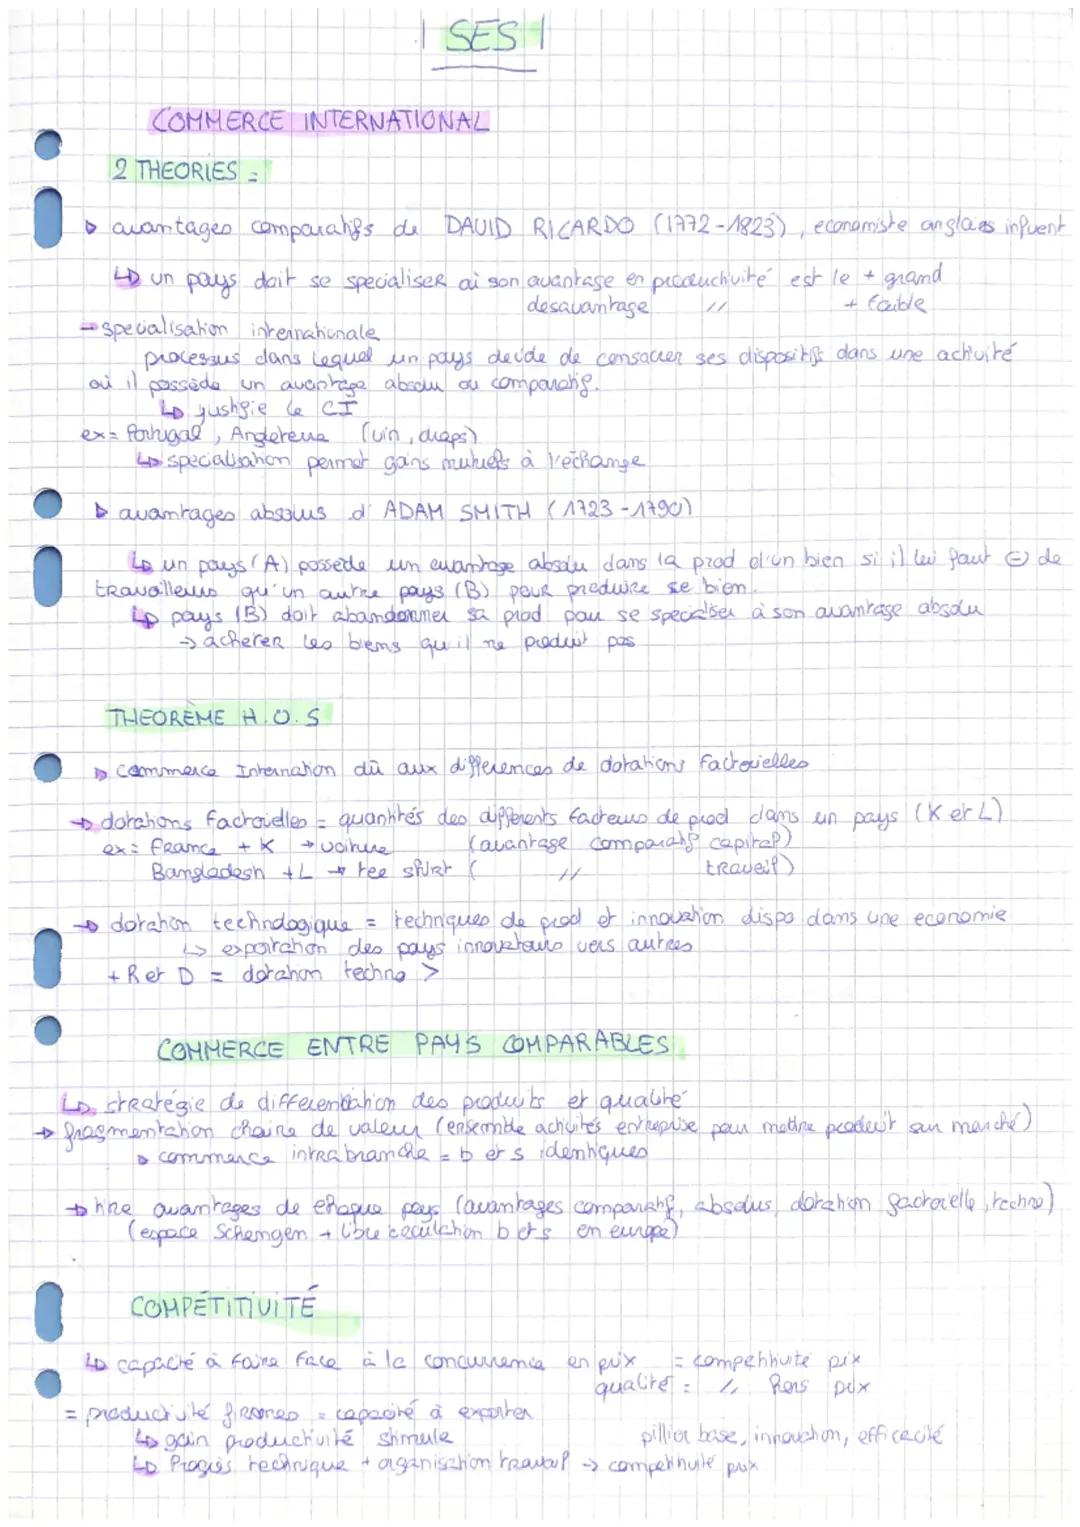 SES
COMMERCE INTERNATIONAL
2 THEORIES =
▷ avantages comparatifs de DAVID RICARDO (1772-1823), economiste anglais influent
↳ un pays doit se specialiser où son avantage en productivité est le + grand
desavantage // + faible
→ specialisation internationale
processus dans lequel un pays decide de consacrer ses dispositifs dans une activité
où il possède un avantage absolu ou comparatif.
↳ justifie le CI
ex = Portugal, Angleterre (vin, draps)
↳ specialisation permet gains mutuels à l'échange
▷ avantages absolus d'ADAM SMITH (1723-1790)
↳ un pays (A) possède un avantage absolu dans la prod d'un bien si il lui faut ⊖ de
travailleurs qu'un autre pays (B) pour produire se bien.
↳ pays (B) doit abandonner sa prod pour se specialiser à son avantage absolu
→ acheter les biens qu'il ne produit pas
THEORÈME H.O.S
▷ commerce Internation dû aux differences de dotations factorielles
→ dotations factorielles = quantités des différents facteurs de prod dans un pays (K et L)
ex = France + K → voiture (avantage comparatif capital)
Bangladesh + L → tee shirt ( // travail)
→ dotation technologique = techniques de prod et innovation dispo dans une economie
↳ exportation des pays innovateurs vers autres
+ R et D = dotation techno >
COMMERCE ENTRE PAYS COMPARABLES
↳ stratégie de differenciation des produits et qualité
→ fragmentation chaine de valeur (ensemble activités entreprise pour mettre produit sur marché)
▷ commerce intrabranche = b et s identiques
→ tire avantages de chaque pays (avantages comparatif, absolus, dotation factorielle, techno)
(espace Schengen → libre circulation b et s en europe)
COMPÉTITIVITÉ
↳ capacité à faire face à la concurrence en prix = compétitivité prix
qualité = // hors prix
= productivité firmes = capacité à exporter
↳ gain productivité stimule pillier base, innovation, efficacité
↳ Progrès technique + organisation travail → compétitivité prix